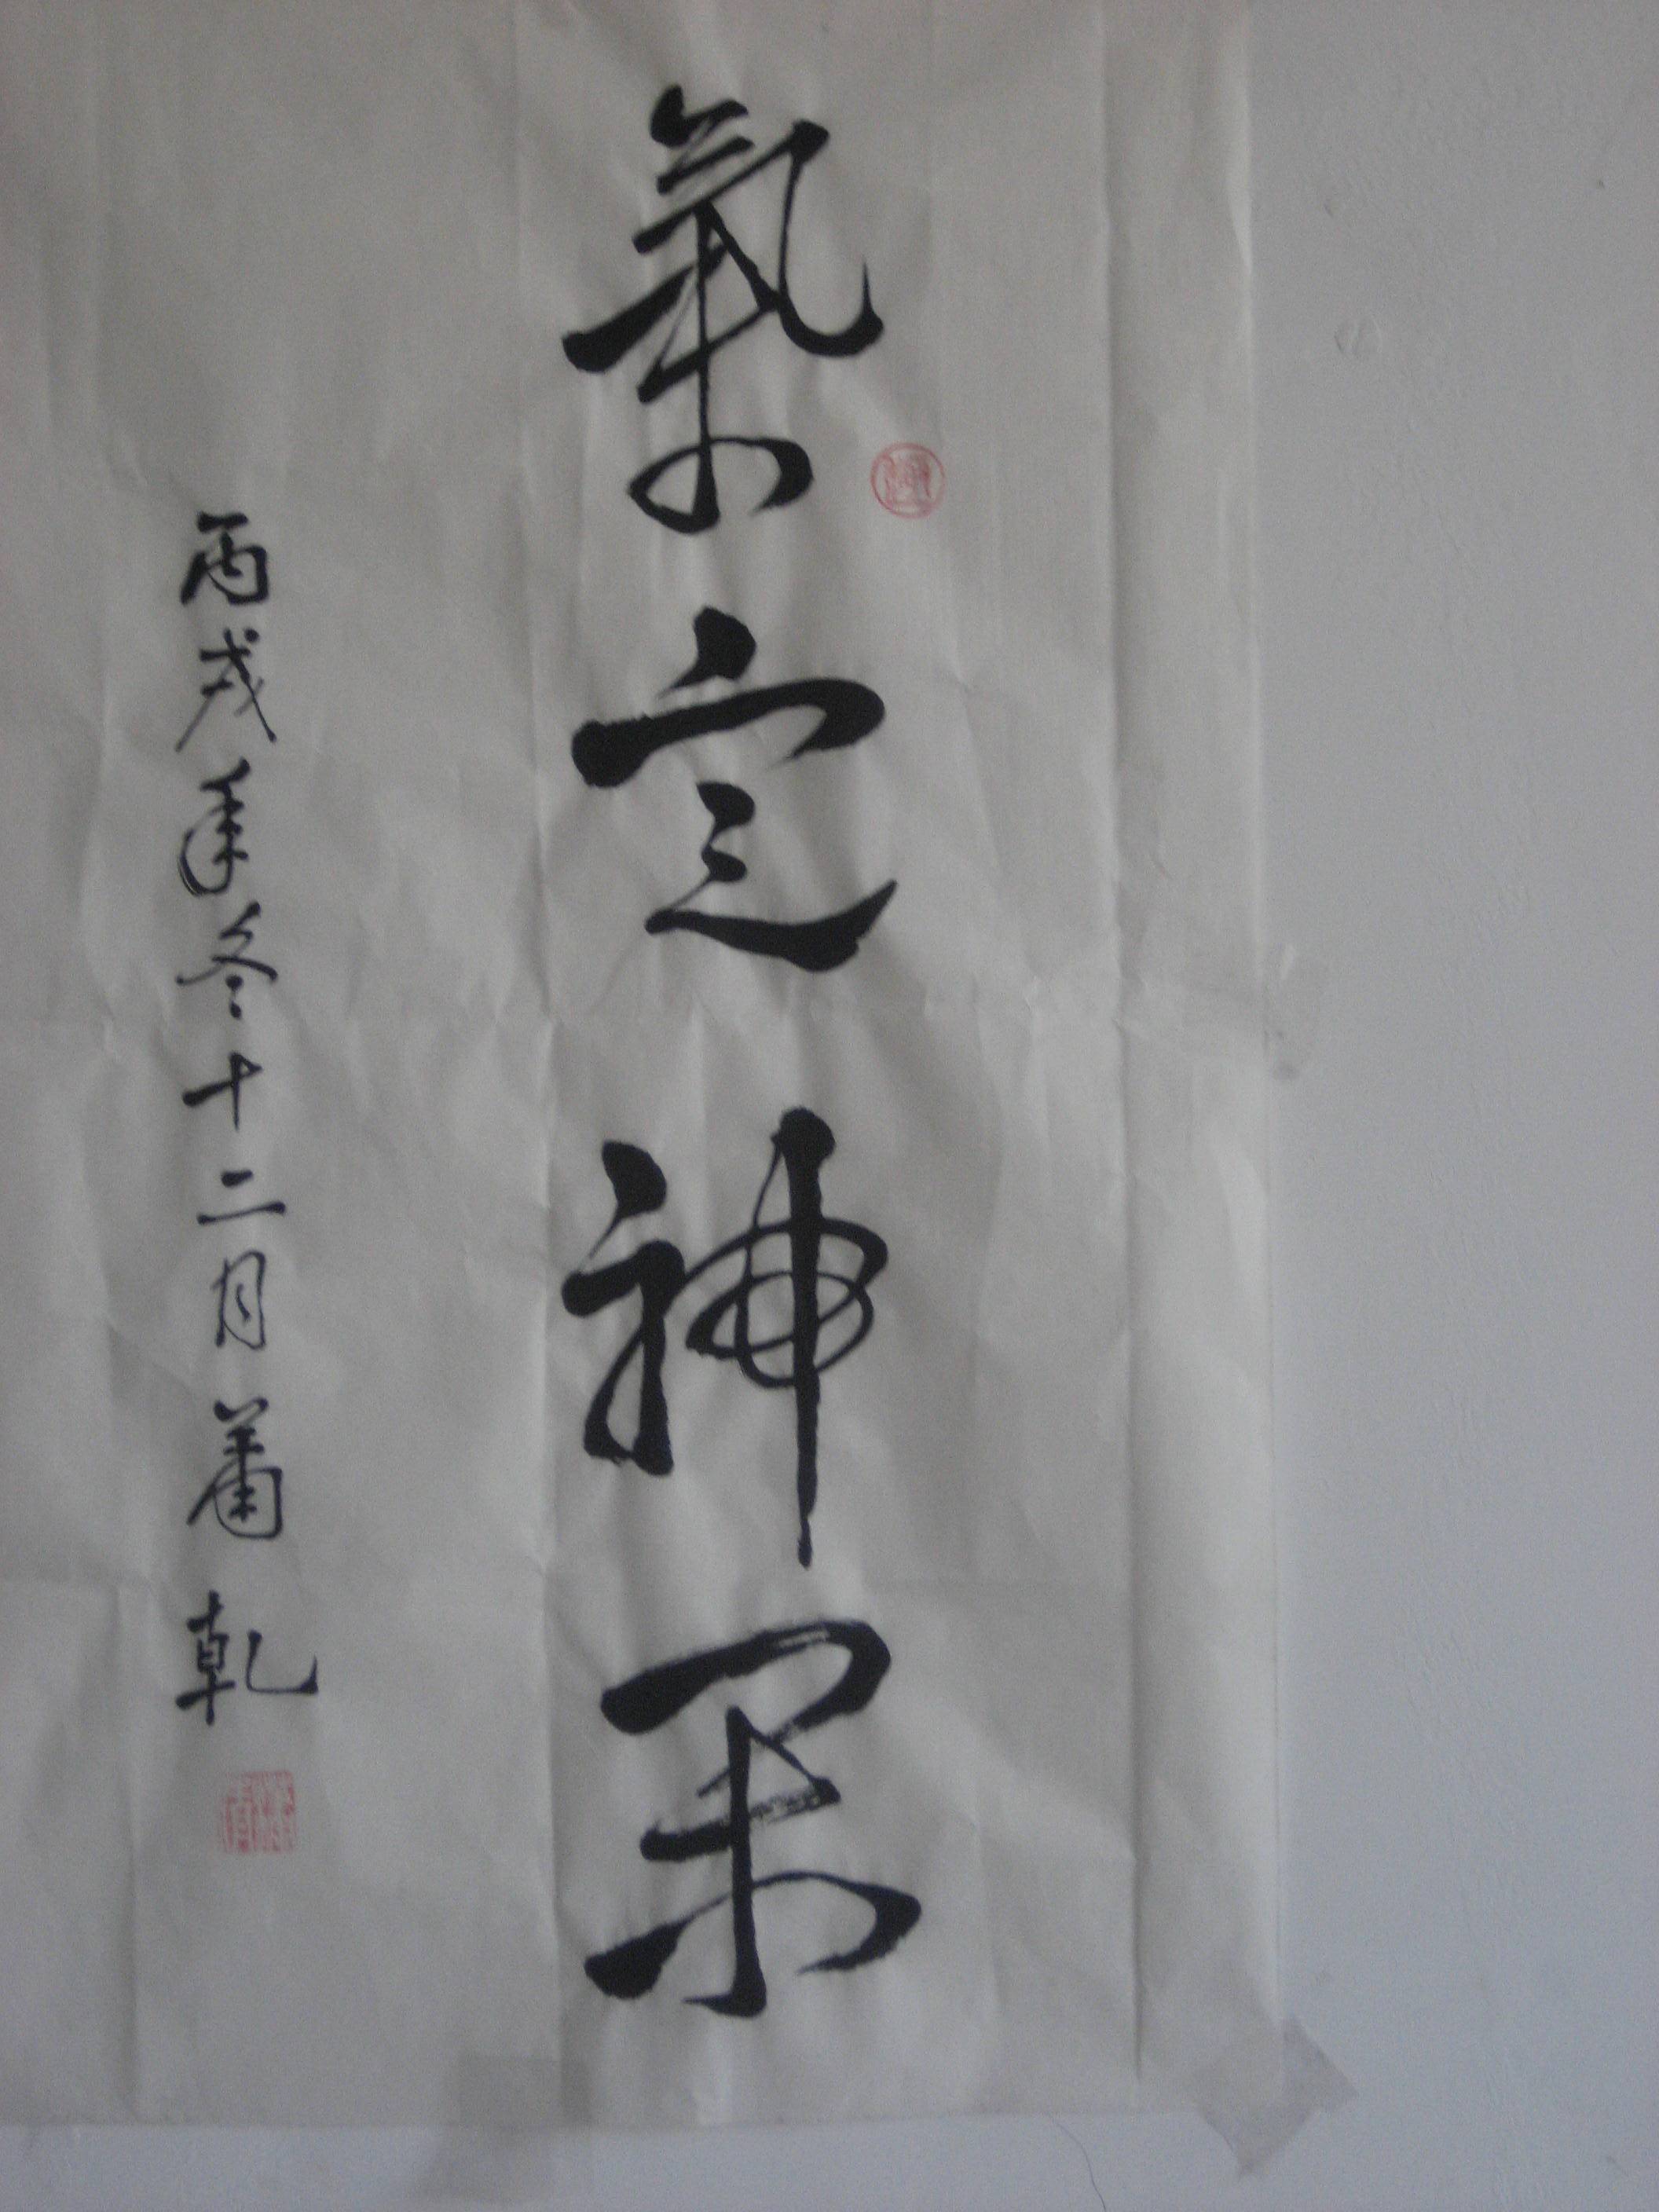 氣定神閑
丙戌年冬十二月蕭乾